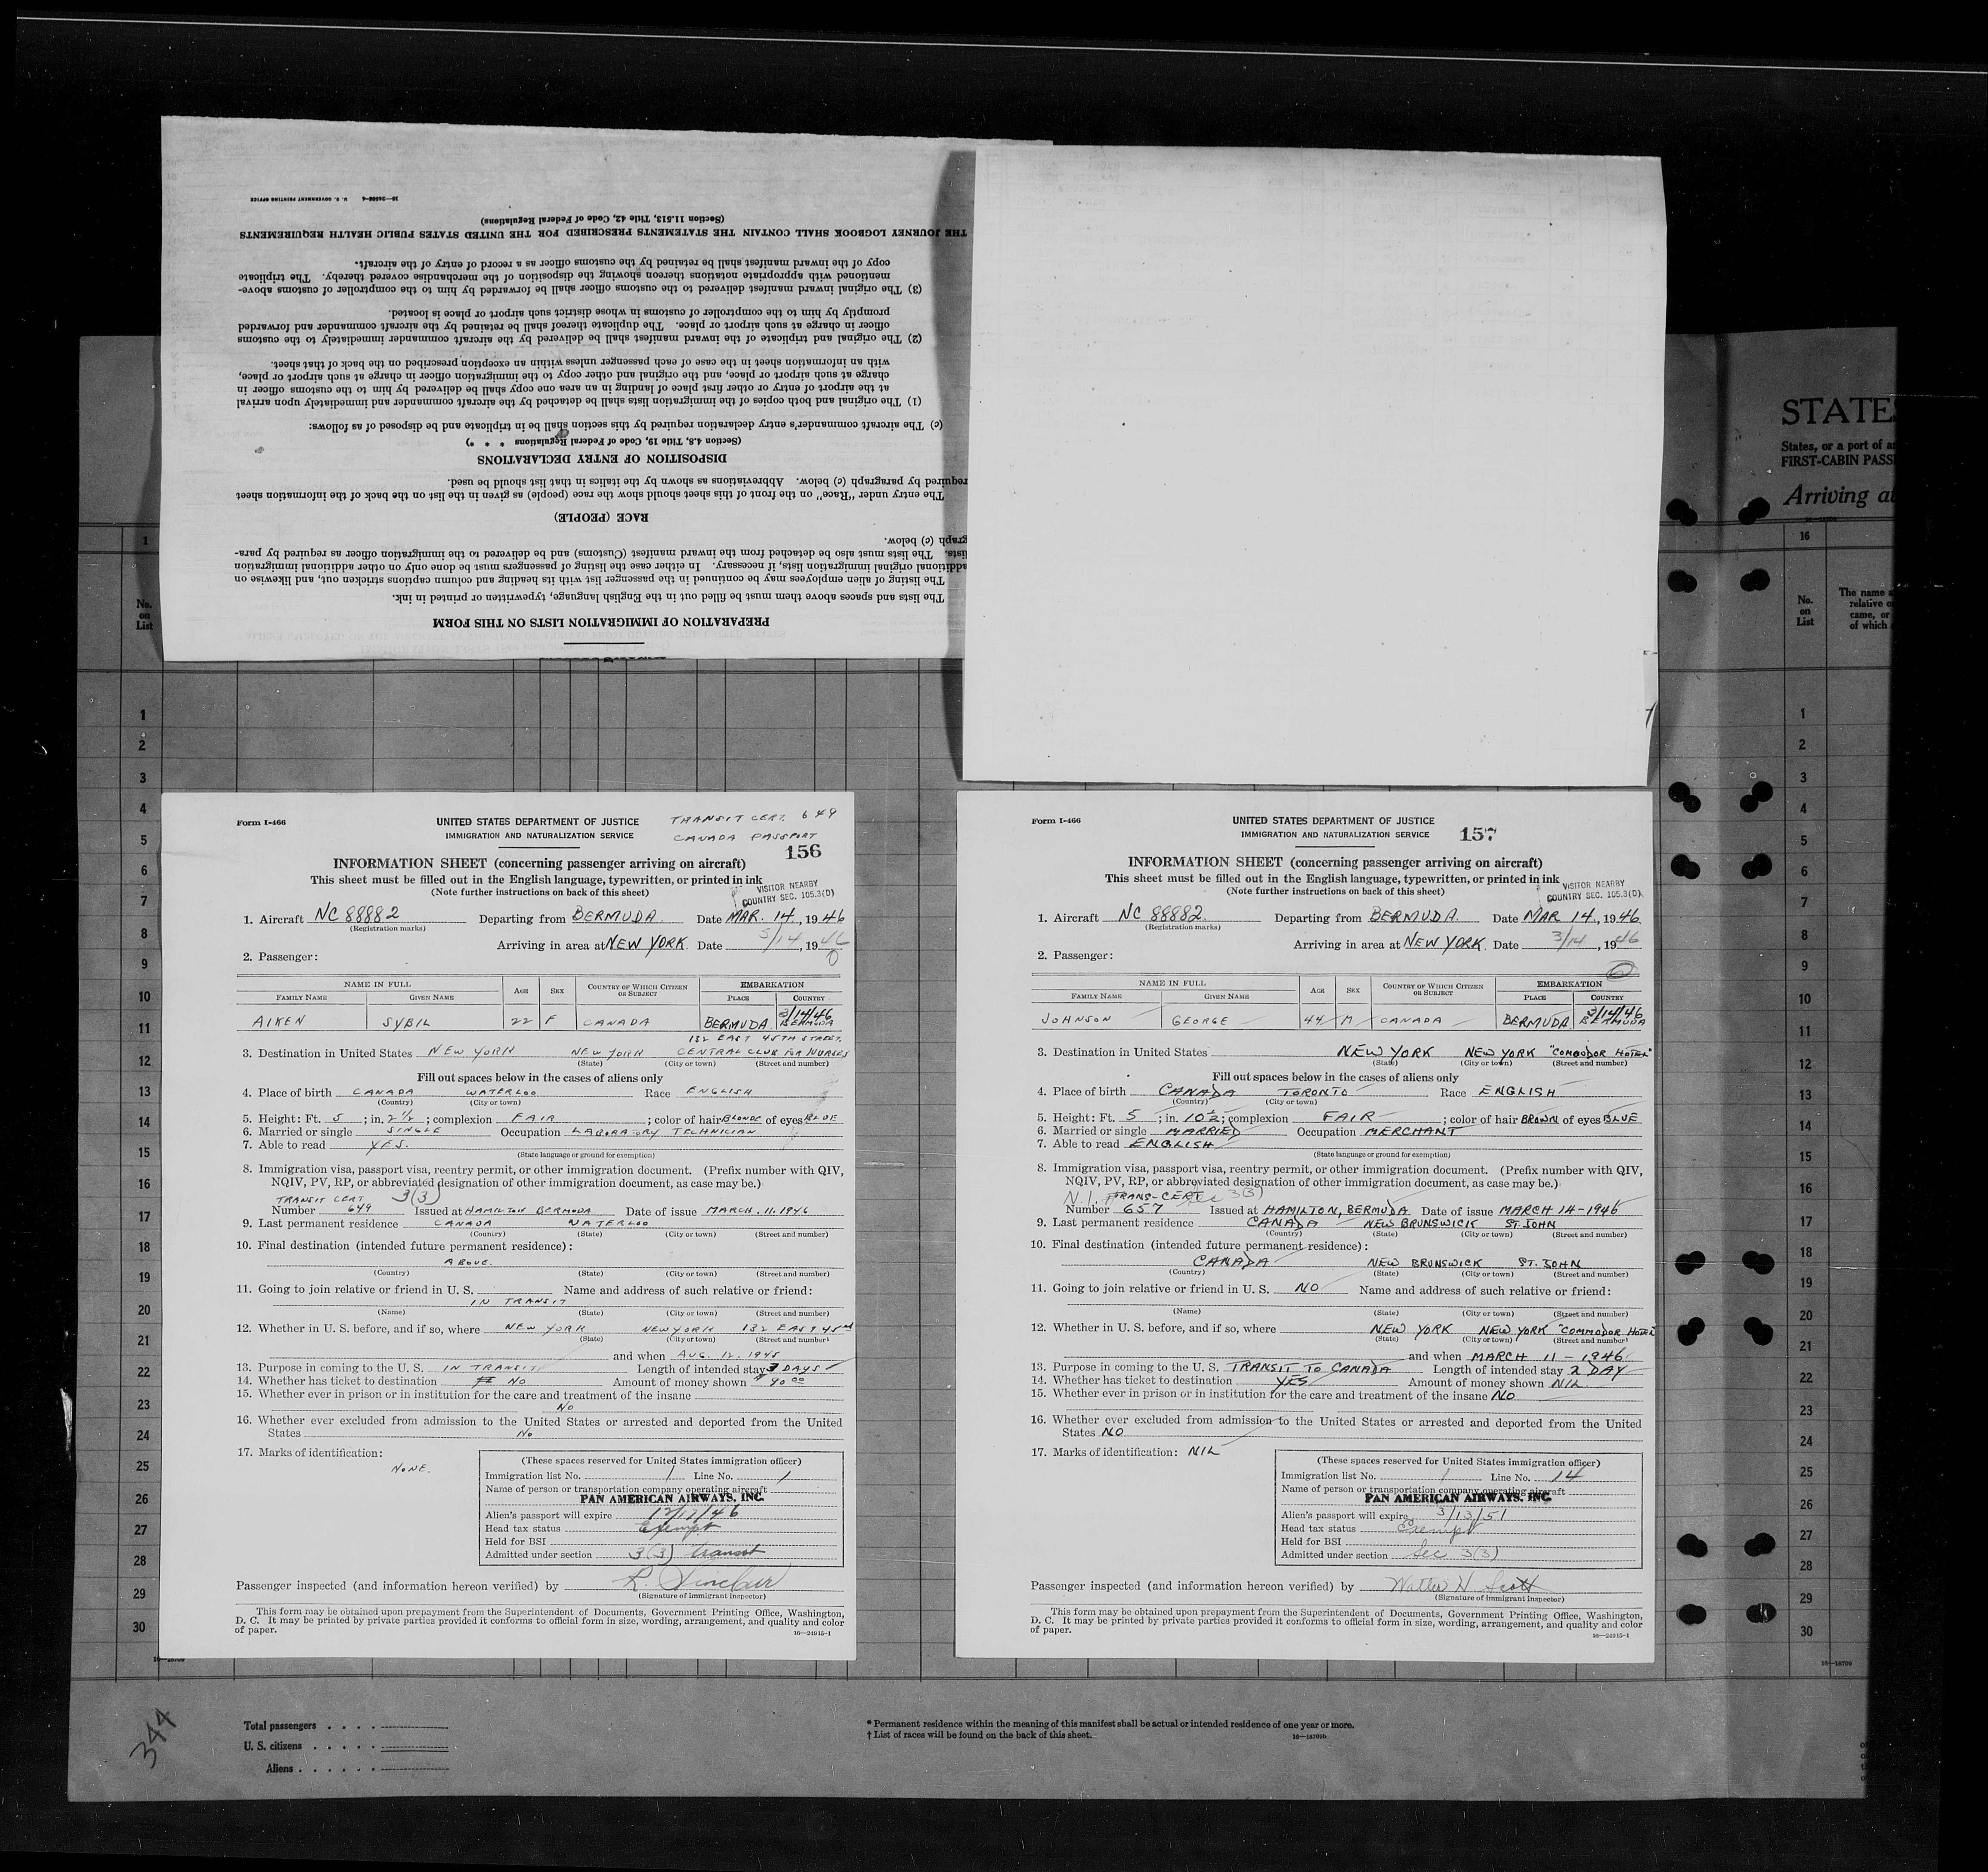 16—24906-4 U. S. GOVERNMENT PRINTING OFFICE
(Section 11.513, Title 42, Code of Federal Regulations)
THE JOURNEY LOGBOOK SHALL CONTAIN THE STATEMENTS PRESCRIBED FOR THE UNITED STATES PUBLIC HEALTH REQUIREMENTS
copy of the inward manifest shall be retained by the customs officer as a record of entry of the aircraft.
mentioned with appropriate notations thereon showing the disposition of the merchandise covered thereby. The triplicate
(3) The original inward manifest delivered to the customs officer shall be forwarded by him to the comptroller of customs above-
promptly by him to the comptroller of customs in whose district such airport or place is located.
officer in charge at such airport or place. The duplicate thereof shall be retained by the aircraft commander and forwarded
(2) The original and triplicate of the inward manifest shall be delivered by the aircraft commander immediately to the customs
with an information sheet in the case of each passenger unless within an exception prescribed on the back of that sheet.
charge at such airport or place, and the original and other copy to the immigration officer in charge at such airport or place,
at the airport of entry or other first place of landing in an area one copy shall be delivered by him to the customs officer in
(1) The original and both copies of the immigration lists shall be detached by the aircraft commander and immediately upon arrival
(c) The aircraft commander's entry declaration required by this section shall be in triplicate and be disposed of as follows:
(Section 4.8, Title 19, Code of Federal Regulations * * *)
DISPOSITION OF ENTRY DECLARATIONS
required by paragraph (c) below. Abbreviations as shown by the italics in that list should be used.
The entry under "Race" on the front of this sheet should show the race (people) as given in the list on the back of the information sheet
RACE (PEOPLE)
graph (c) below.
lists. The lists must also be detached from the inward manifest (Customs) and be delivered to the immigration officer as required by para-
additional original immigration lists, if necessary. In either case the listing of passengers must be done only on other additional immigration
The listing of alien employees may be continued in the passenger list with its heading and column captions stricken out, and likewise on
The lists and spaces above them must be filled out in the English language, typewritten or printed in ink.
PREPARATION OF IMMIGRATION LISTS ON THIS FORM
STATES
States, or a port of a
FIRST-CABIN PASS
Arriving at
1
16
No. on List
No. on List
The name a
relative o
came, or
of which
1
2
3
4
5
6
7
8
9
10
11
12
13
14
15
16
17
18
19
20
21
22
23
24
25
26
27
28
29
30
Form I-466
UNITED STATES DEPARTMENT OF JUSTICE
TRANSIT CERT. 649
IMMIGRATION AND NATURALIZATION SERVICE
CANADA PASSPORT
156
INFORMATION SHEET (concerning passenger arriving on aircraft)
This sheet must be filled out in the English language, typewritten, or printed in ink
(Note further instructions on back of this sheet)
VISITOR NEARBY
COUNTRY SEC. 105.3(D)
1. Aircraft NC 88882 Departing from BERMUDA. Date MAR. 14, 1946
(Registration marks)
Arriving in area at NEW YORK. Date 5/14, 1946
2. Passenger:
0
NAME IN FULL AGE SEX COUNTRY OF WHICH CITIZEN OR SUBJECT EMBARKATION
FAMILY NAME GIVEN NAME PLACE COUNTRY
3/14/46
AIKEN SYBIL 22 F CANADA BERMUDA. BERMUDA
132 EAST 45TH STREET.
3. Destination in United States NEW YORK NEW YORK CENTRAL CLUB FOR NURSES
(State) (City or town) (Street and number)
Fill out spaces below in the cases of aliens only
4. Place of birth CANADA WATERLOO Race ENGLISH
(Country) (City or town)
5. Height: Ft. 5; in. 2½; complexion FAIR; color of hair BLONDE of eyes BLUE
6. Married or single SINGLE Occupation LABORATORY TECHNICIAN
7. Able to read YES.
(State language or ground for exemption)
8. Immigration visa, passport visa, reentry permit, or other immigration document. (Prefix number with QIV,
NQIV, PV, RP, or abbreviated designation of other immigration document, as case may be.)
TRANSIT CERT. 3(3)
Number 649 Issued at HAMILTON BERMUDA Date of issue MARCH. 11. 1946
9. Last permanent residence CANADA WATERLOO
(Country) (State) (City or town) (Street and number)
10. Final destination (intended future permanent residence):
ABOVE.
(Country) (State) (City or town) (Street and number)
11. Going to join relative or friend in U. S. Name and address of such relative or friend:
IN TRANSIT
(Name) (State) (City or town) (Street and number)
12. Whether in U. S. before, and if so, where NEW YORK NEW YORK 132 EAST 45
(State) (City or town) (Street and number)
and when AUG. 12. 1945
13. Purpose in coming to the U. S. IN TRANSIT Length of intended stay 3 DAYS
14. Whether has ticket to destination NO Amount of money shown $90 00
15. Whether ever in prison or in institution for the care and treatment of the insane
NO
16. Whether ever excluded from admission to the United States or arrested and deported from the United
States NO
17. Marks of identification:
NONE.
(These spaces reserved for United States immigration officer)
Immigration list No. 1 Line No. 1
Name of person or transportation company operating aircraft
PAN AMERICAN AIRWAYS, INC.
Alien's passport will expire 12/17/46
Head tax status Exempt
Held for BSI
Admitted under section 3(3) transit
Passenger inspected (and information hereon verified) by R. Sinclair
(Signature of immigrant inspector)
This form may be obtained upon prepayment from the Superintendent of Documents, Government Printing Office, Washington,
D. C. It may be printed by private parties provided it conforms to official form in size, wording, arrangement, and quality and color
of paper.
16—24915-1
Form I-466
UNITED STATES DEPARTMENT OF JUSTICE
IMMIGRATION AND NATURALIZATION SERVICE
157
INFORMATION SHEET (concerning passenger arriving on aircraft)
This sheet must be filled out in the English language, typewritten, or printed in ink
(Note further instructions on back of this sheet)
VISITOR NEARBY
COUNTRY SEC. 105.3(D)
1. Aircraft NC 88882. Departing from BERMUDA. Date MAR 14, 1946
(Registration marks)
Arriving in area at NEW YORK. Date 3/14, 1946
2. Passenger:
NAME IN FULL AGE SEX COUNTRY OF WHICH CITIZEN OR SUBJECT EMBARKATION
FAMILY NAME GIVEN NAME PLACE COUNTRY
3/14/46
JOHNSON GEORGE 44 M CANADA BERMUDA BERMUDA
3. Destination in United States NEW YORK NEW YORK "COMODOR HOTEL"
(State) (City or town) (Street and number)
Fill out spaces below in the cases of aliens only
4. Place of birth CANADA TORONTO Race ENGLISH
(Country) (City or town)
5. Height: Ft. 5; in. 10½; complexion FAIR; color of hair BROWN of eyes BLUE
6. Married or single MARRIED Occupation MERCHANT
7. Able to read ENGLISH
(State language or ground for exemption)
8. Immigration visa, passport visa, reentry permit, or other immigration document. (Prefix number with QIV,
NQIV, PV, RP, or abbreviated designation of other immigration document, as case may be.)
N.I. TRANS-CERT Sec 3(3)
Number 657 Issued at HAMILTON, BERMUDA Date of issue MARCH 14-1946
9. Last permanent residence CANADA NEW BRUNSWICK ST. JOHN
(Country) (State) (City or town) (Street and number)
10. Final destination (intended future permanent residence):
CANADA NEW BRUNSWICK ST. JOHN
(Country) (State) (City or town) (Street and number)
11. Going to join relative or friend in U. S. NO Name and address of such relative or friend:
(Name) (State) (City or town) (Street and number)
12. Whether in U. S. before, and if so, where NEW YORK NEW YORK "COMMODOR HOTEL"
(State) (City or town) (Street and number)
and when MARCH 11-1946
13. Purpose in coming to the U. S. TRANSIT TO CANADA Length of intended stay 2 DAY
14. Whether has ticket to destination YES Amount of money shown NIL.
15. Whether ever in prison or in institution for the care and treatment of the insane NO
16. Whether ever excluded from admission to the United States or arrested and deported from the United
States NO
17. Marks of identification: NIL
(These spaces reserved for United States immigration officer)
Immigration list No. 1 Line No. 14
Name of person or transportation company operating aircraft
PAN AMERICAN AIRWAYS, INC.
Alien's passport will expire 3/13/51
Head tax status Exempt
Held for BSI
Admitted under section Sec 3(3)
Passenger inspected (and information hereon verified) by Walter H. Scott
(Signature of immigrant inspector)
This form may be obtained upon prepayment from the Superintendent of Documents, Government Printing Office, Washington,
D. C. It may be printed by private parties provided it conforms to official form in size, wording, arrangement, and quality and color
of paper.
16—24915-1
1
2
3
4
5
6
7
8
9
10
11
12
13
14
15
16
17
18
19
20
21
22
23
24
25
26
27
28
29
30
16—18709
16—18709
344
Total passengers
U. S. citizens
Aliens
* Permanent residence within the meaning of this manifest shall be actual or intended residence of one year or more.
† List of races will be found on the back of this sheet.
16—18709b